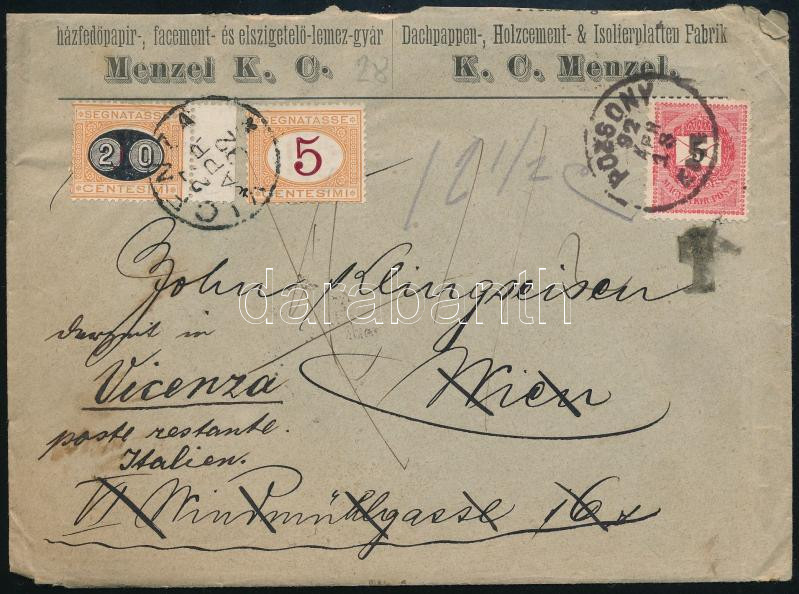 házfedőpapir-, facement- és elszigetelő-lemez-gyár
Menzel K. C.
Dachpappen-, Holzcement- & Isolierplatten Fabrik
K. C. Menzel.
28
SEGNATASSE
20
CENTESIMI
VICENZA
SEGNATASSE
5
CENTESIMI
12 1/2
POZSONY
92
APR
18
5
MAGYAR KIR. POSTA
T
John Klingseisen
derzeit in
Vicenza
Wien
poste restante.
Italien.
VI Windmühlgasse 16
darabanth